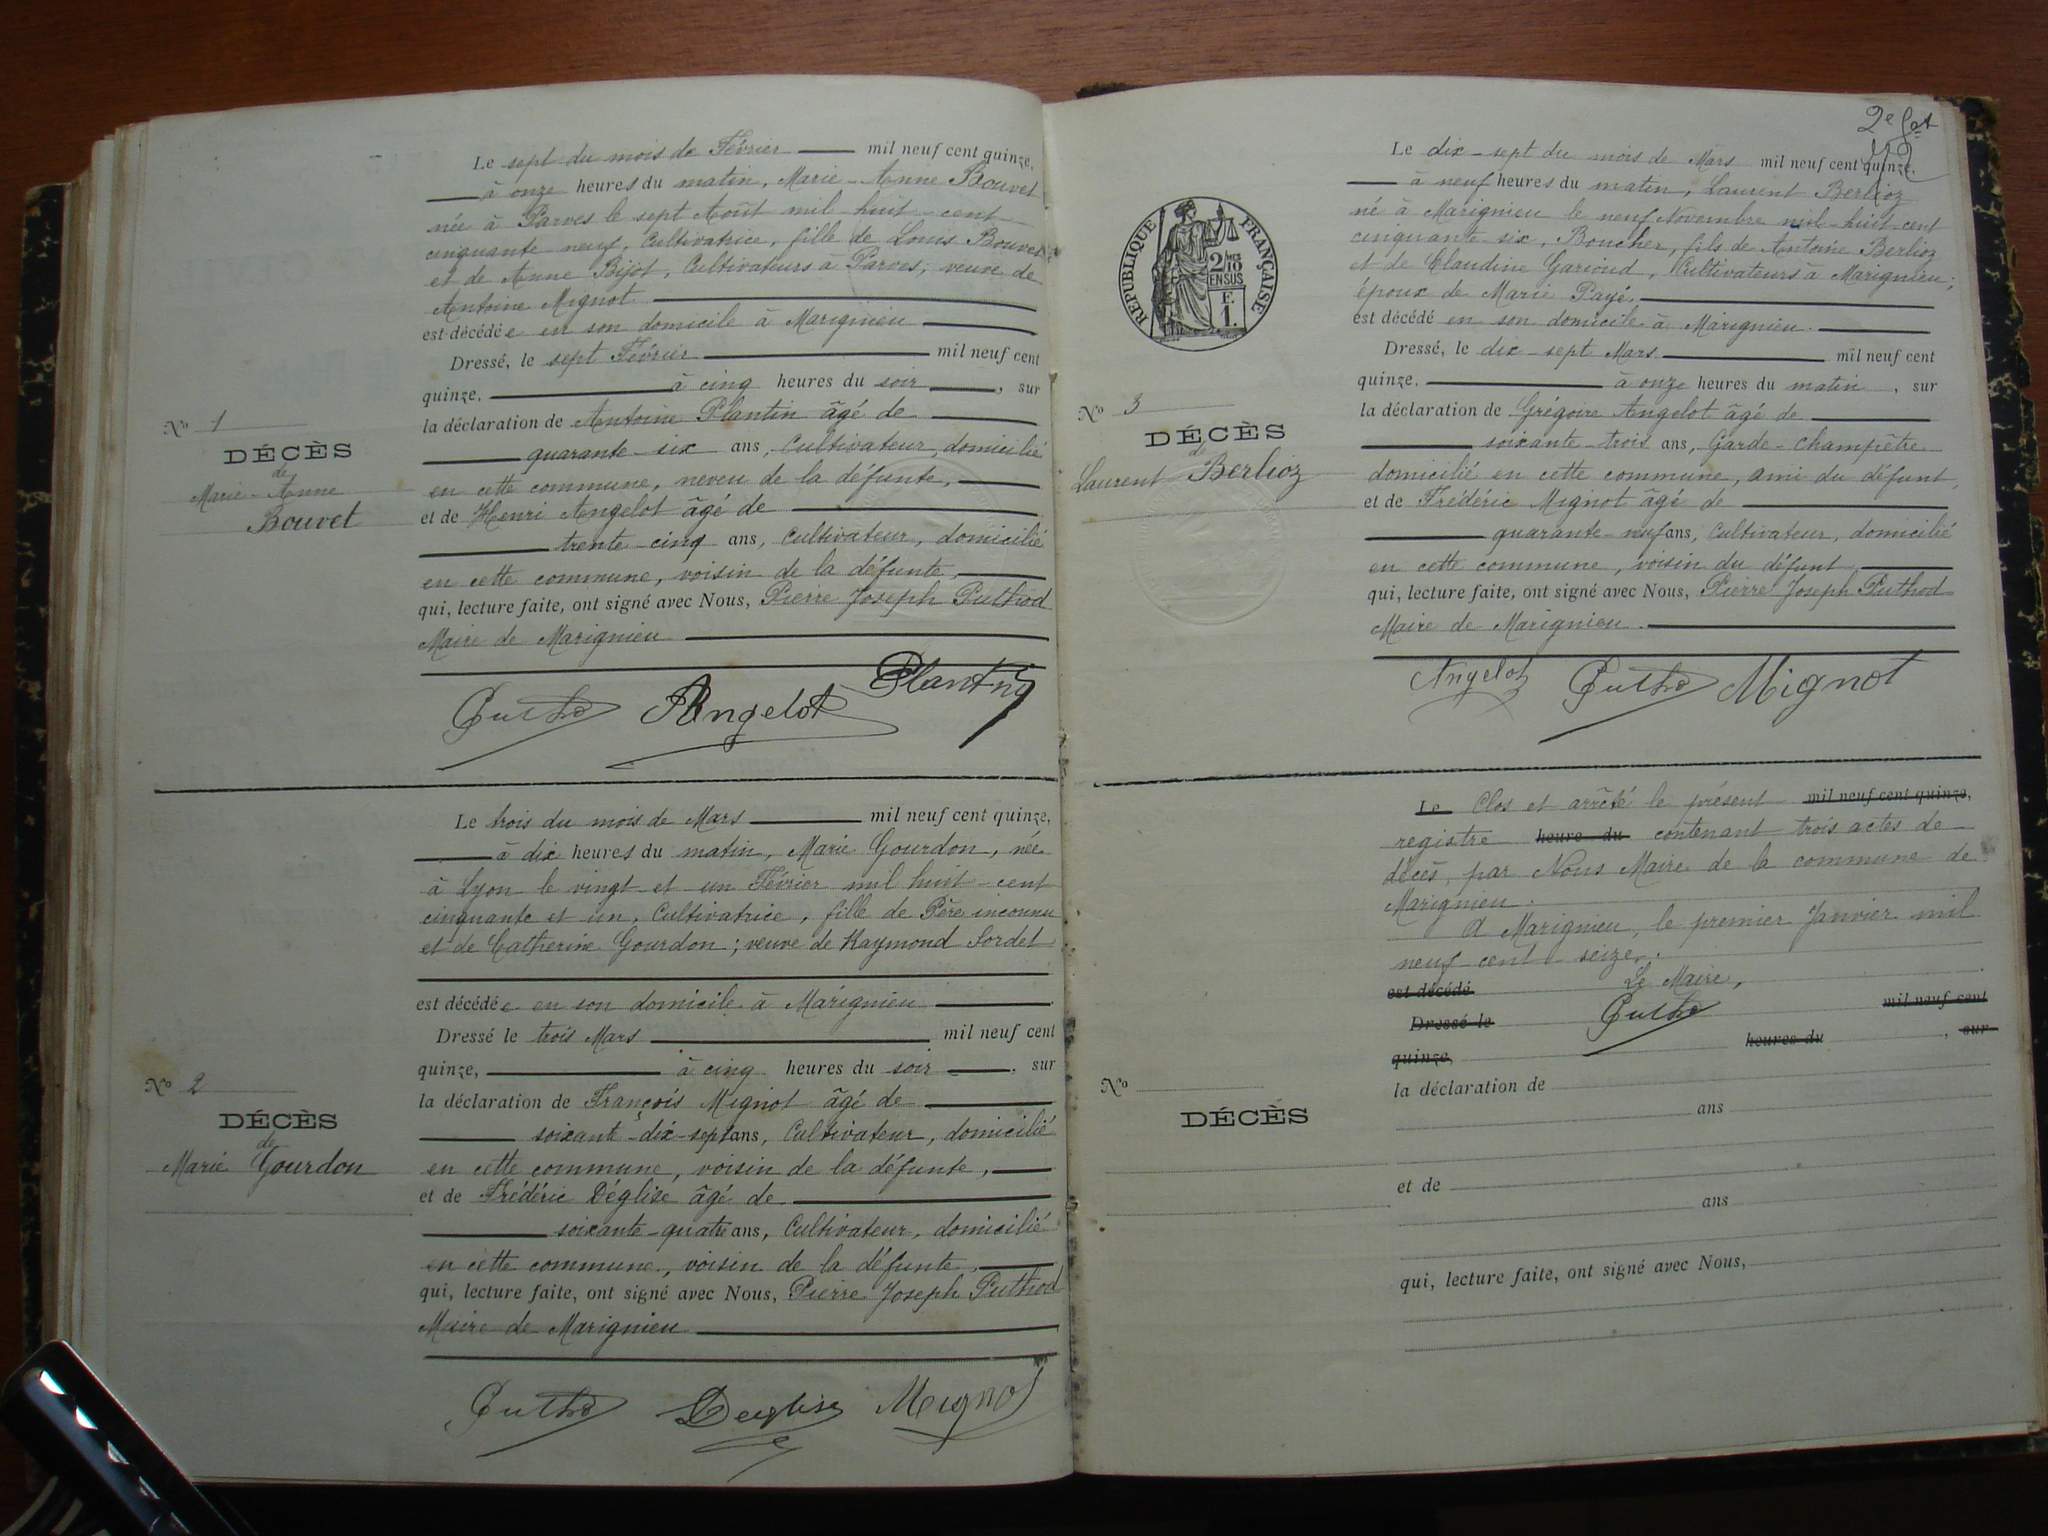 Le sept du mois de Février mil neuf cent quinze,
à onze heures du matin, Marie-Anne Bouvet
née à Parves le sept Août mil-huit-cent
cinquante neuf, Cultivatrice, fille de Louis Bouvet
et de Anne Bijot, Cultivateurs à Parves, veuve de
Antoine Mignot
est décédée en son domicile à Marignieu
Dressé, le sept Février mil neuf cent
quinze, à cinq heures du soir, sur
la déclaration de Antoine Plantin âgé de
quarante-six ans, Cultivateur, domicilié
en cette commune, neveu de la défunte,
et de Henri Angelot âgé de
trente-cinq ans, Cultivateur, domicilié
en cette commune, voisin de la défunte,
qui, lecture faite, ont signé avec Nous, Pierre Joseph Puthod
Maire de Marignieu
Nº 1
DÉCÈS
de
Marie-Anne
Bouvet
Puthod Angelot Plantin
Le trois du mois de Mars mil neuf cent quinze,
à dix heures du matin, Marie Gourdon, née
à Lyon le vingt et un Février mil huit-cent
cinquante et un, Cultivatrice, fille de Père inconnu
et de Catherine Gourdon; veuve de Raymond Sordet
est décédée en son domicile à Marignieu
Dressé le trois Mars mil neuf cent
quinze, à cinq heures du soir, sur
la déclaration de François Mignot âgé de
soixante-dix-sept ans, Cultivateur, domicilié
en cette commune, voisin de la défunte,
et de Frédéric Déglise âgé de
soixante-quatre ans, Cultivateur, domicilié
en cette commune, voisin de la défunte,
qui, lecture faite, ont signé avec Nous, Pierre Joseph Puthod
Maire de Marignieu
Nº 2
DÉCÈS
de
Marie Gourdon
Puthod Déglise Mignot
2e
RÉPUBLIQUE FRANÇAISE
2/10
EN SUS
F.
1.
Le dix-sept du mois de Mars mil neuf cent quinze,
à neuf heures du matin, Laurent Berlioz
né à Marignieu le neuf Novembre mil-huit-cent
cinquante-six, Boucher, fils de Antoine Berlioz
et de Claudine Gariod, Cultivateurs à Marignieu;
époux de Marie Payé.
est décédé en son domicile à Marignieu.
Dressé, le dix-sept Mars mil neuf cent
quinze, à onze heures du matin, sur
la déclaration de Grégoire Angelot âgé de
soixante-trois ans, Garde-champêtre
domicilié en cette commune, ami du défunt,
et de Frédéric Mignot âgé de
quarante-neuf ans, Cultivateur, domicilié
en cette commune, voisin du défunt,
qui, lecture faite, ont signé avec Nous, Pierre Joseph Puthod
Maire de Marignieu.
Nº 3
DÉCÈS
de
Laurent Berlioz
Angelot Puthod Mignot
Le Clos et arrêté le présent mil neuf cent quinze,
registre heure du contenant trois actes de
décès, par Nous Maire de la commune de
Marignieu.
A Marignieu, le premier Janvier mil
neuf cent seize.
est décédé Le Maire,
Dressé le Puthod mil neuf cent
quinze, heures du, sur
la déclaration de
ans
et de
ans
qui, lecture faite, ont signé avec Nous,
Nº
DÉCÈS